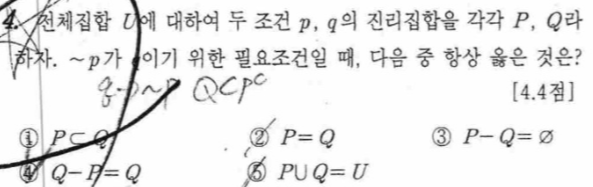 4. 전체집합 U에 대하여 두 조건 p, q의 진리집합을 각각 P, Q라
하자. ~p가 q이기 위한 필요조건일 때, 다음 중 항상 옳은 것은?
q→~p Q⊂Pᶜ
[4.4점]
① P⊂Q ② P=Q ③ P-Q=∅
④ Q-P=Q ⑤ P∪Q=U